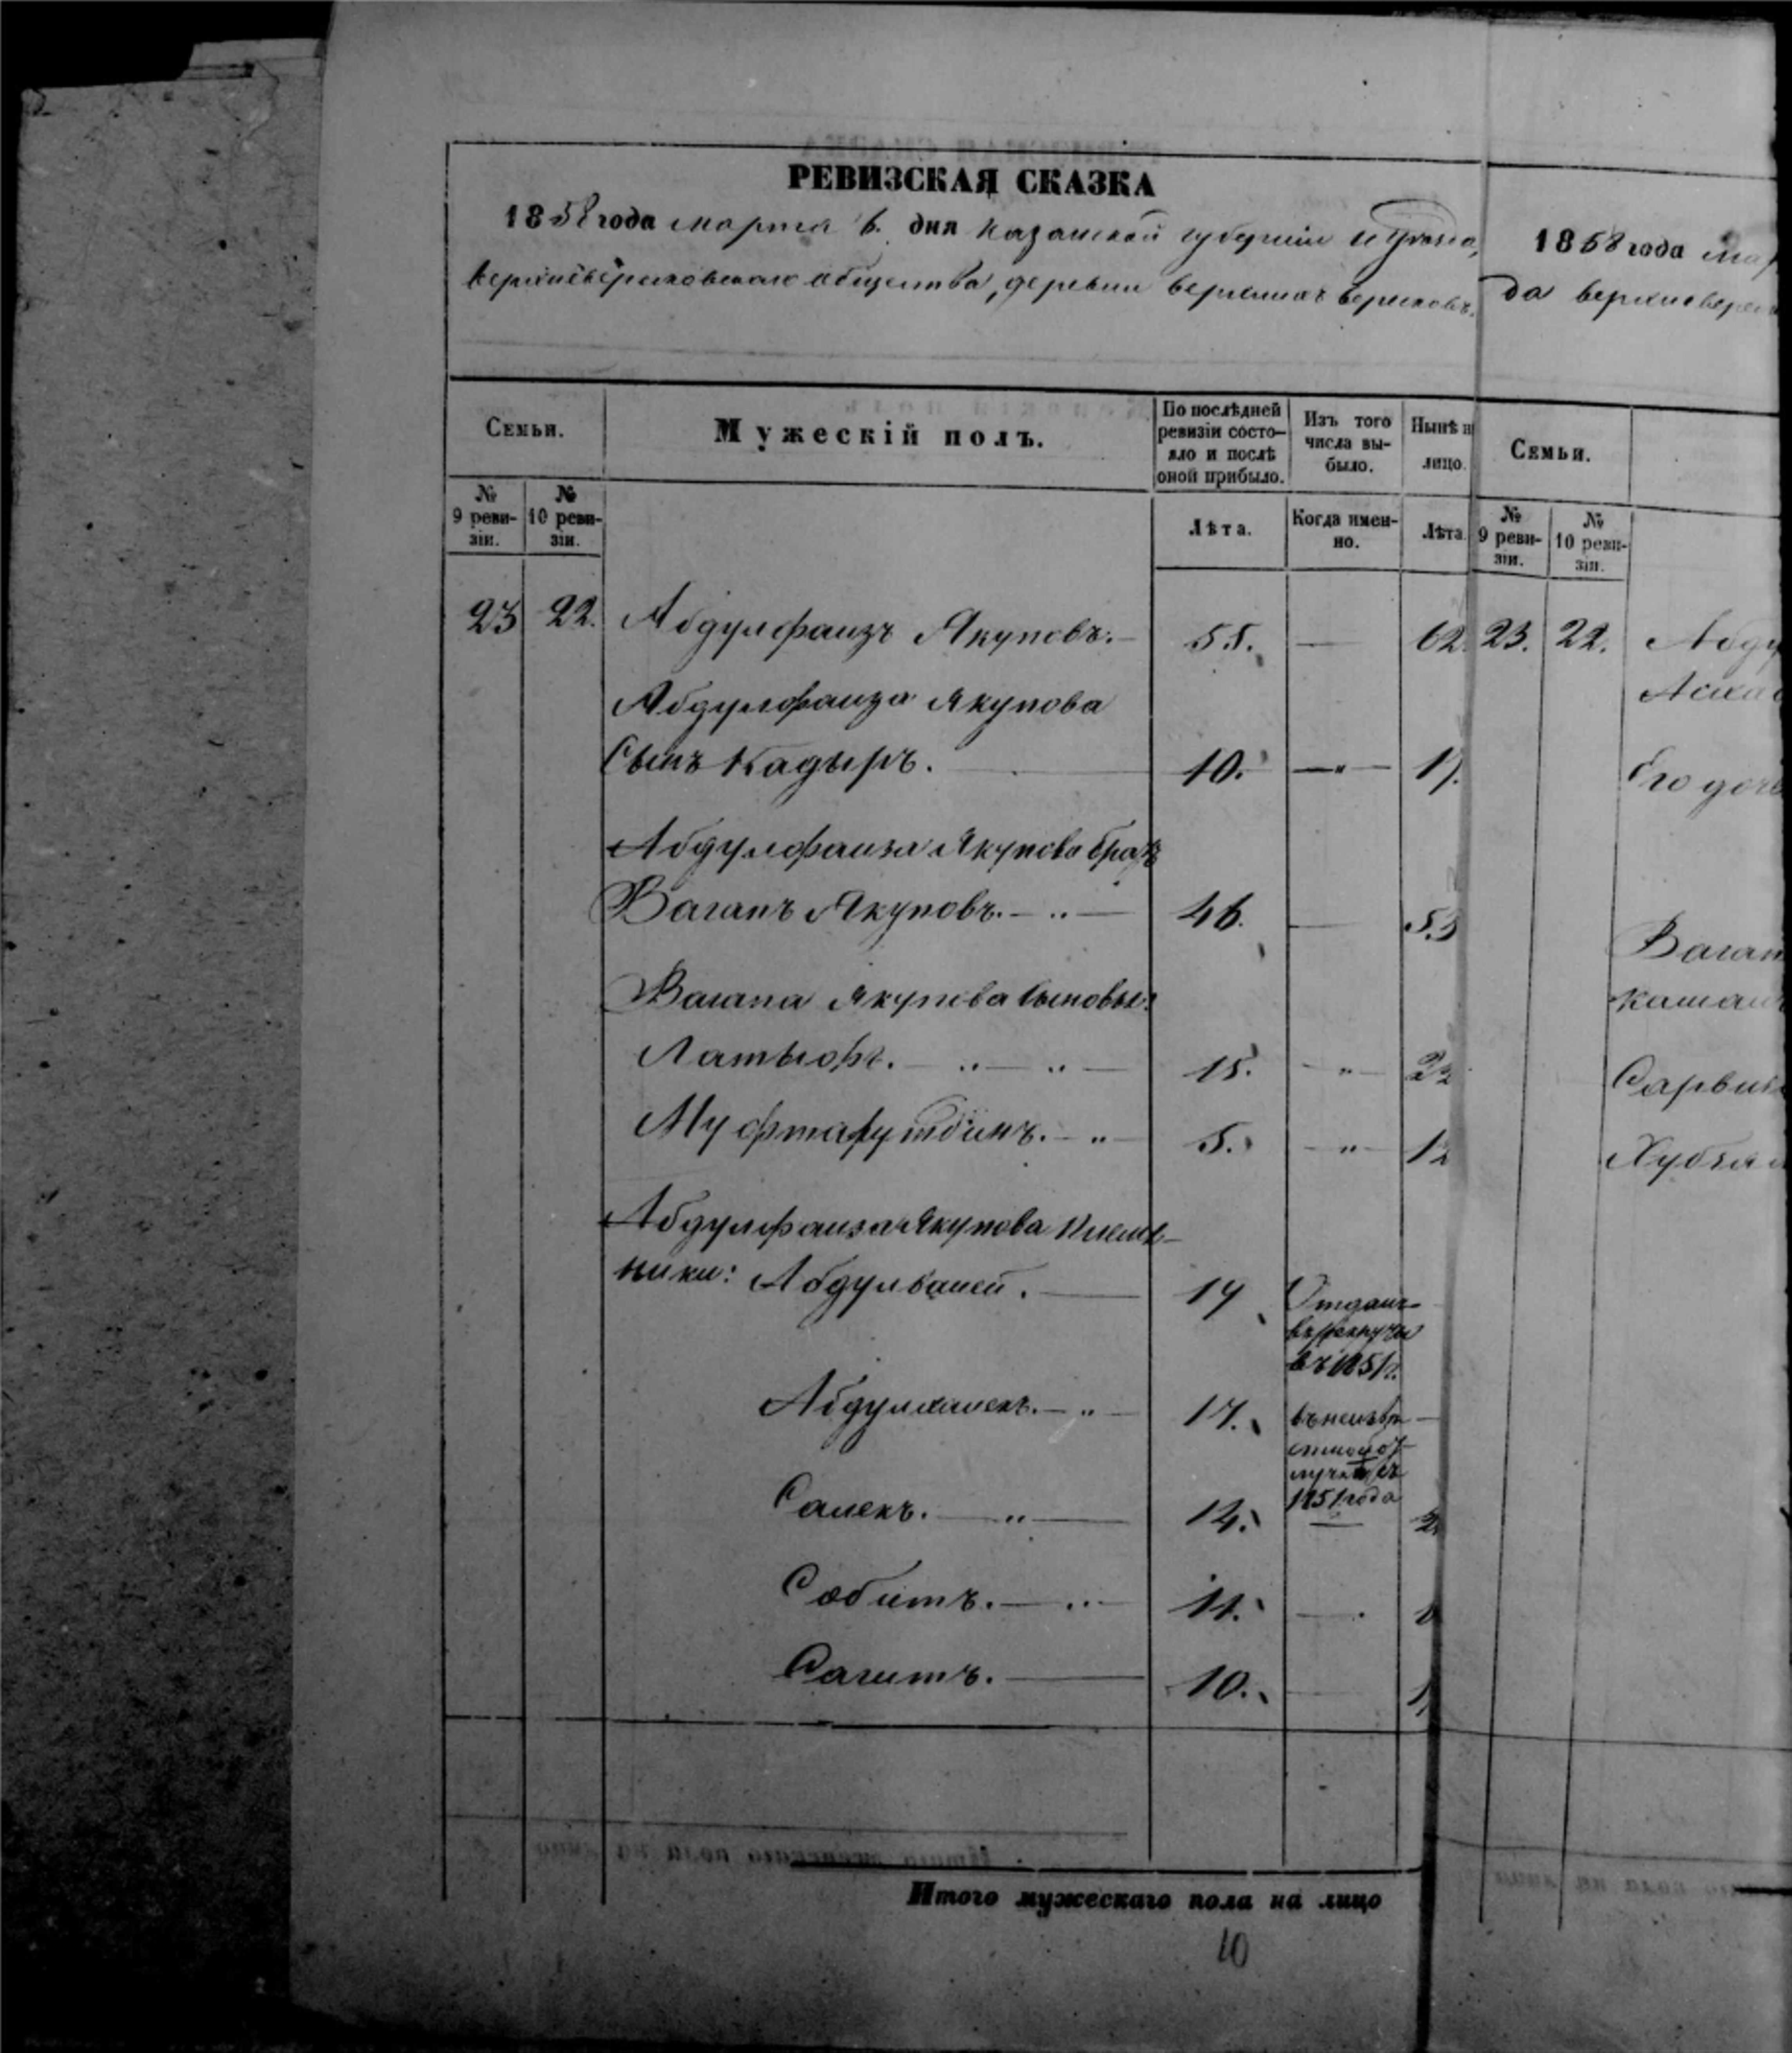 РЕВИЗСКАЯ СКАЗКА
1858 года марта 6. дня Казанской губернии и уезда,
верхневересковскаго общества, деревни верхнихъ Верески.
Семьи.
Мужескій полъ.
По послѣдней ревизіи состо-
яло и послѣ
оной прибыло.
Изъ того
числа вы-
было.
Нынѣ н
лицо.
№
9 реви-
зіи.
№
10 реви-
зіи.
Лѣта.
Когда имен-
но.
Лѣта.
23 22. Абдулфаизъ Якуповъ. 55. — 62.
Абдулфаиза Якупова
Сынъ Кадыръ. 10. —"— 17.
Абдулфаиза Якупова братъ
Вагапъ Якуповъ. — " — 46. — 53
Вагапа Якупова сыновья:
Латыфъ. — " — " — 15. — " — 22
Муфтахутдинъ. — " — 5. — " — 12
Абдулфаиза Якупова племян-
ники: Абдулваней. — 19 Отданъ
въ рекруты
въ 1851 г.
Абдулхалекъ. — " — 17. въ неизвѣ-
стной от-
лучкѣ съ
1851 года
Салехъ. — " — 14. — 2
Сабитъ. — " — 11. — 1
Сагитъ. — 10. — 1
Итого мужескаго пола на лицо
10
1858 года мар
да верхневерес
Семьи.
№
9 реви-
зіи.
№
10 реви-
зіи.
23. 22. Абду
Его доче
Вагап
Сарвиж